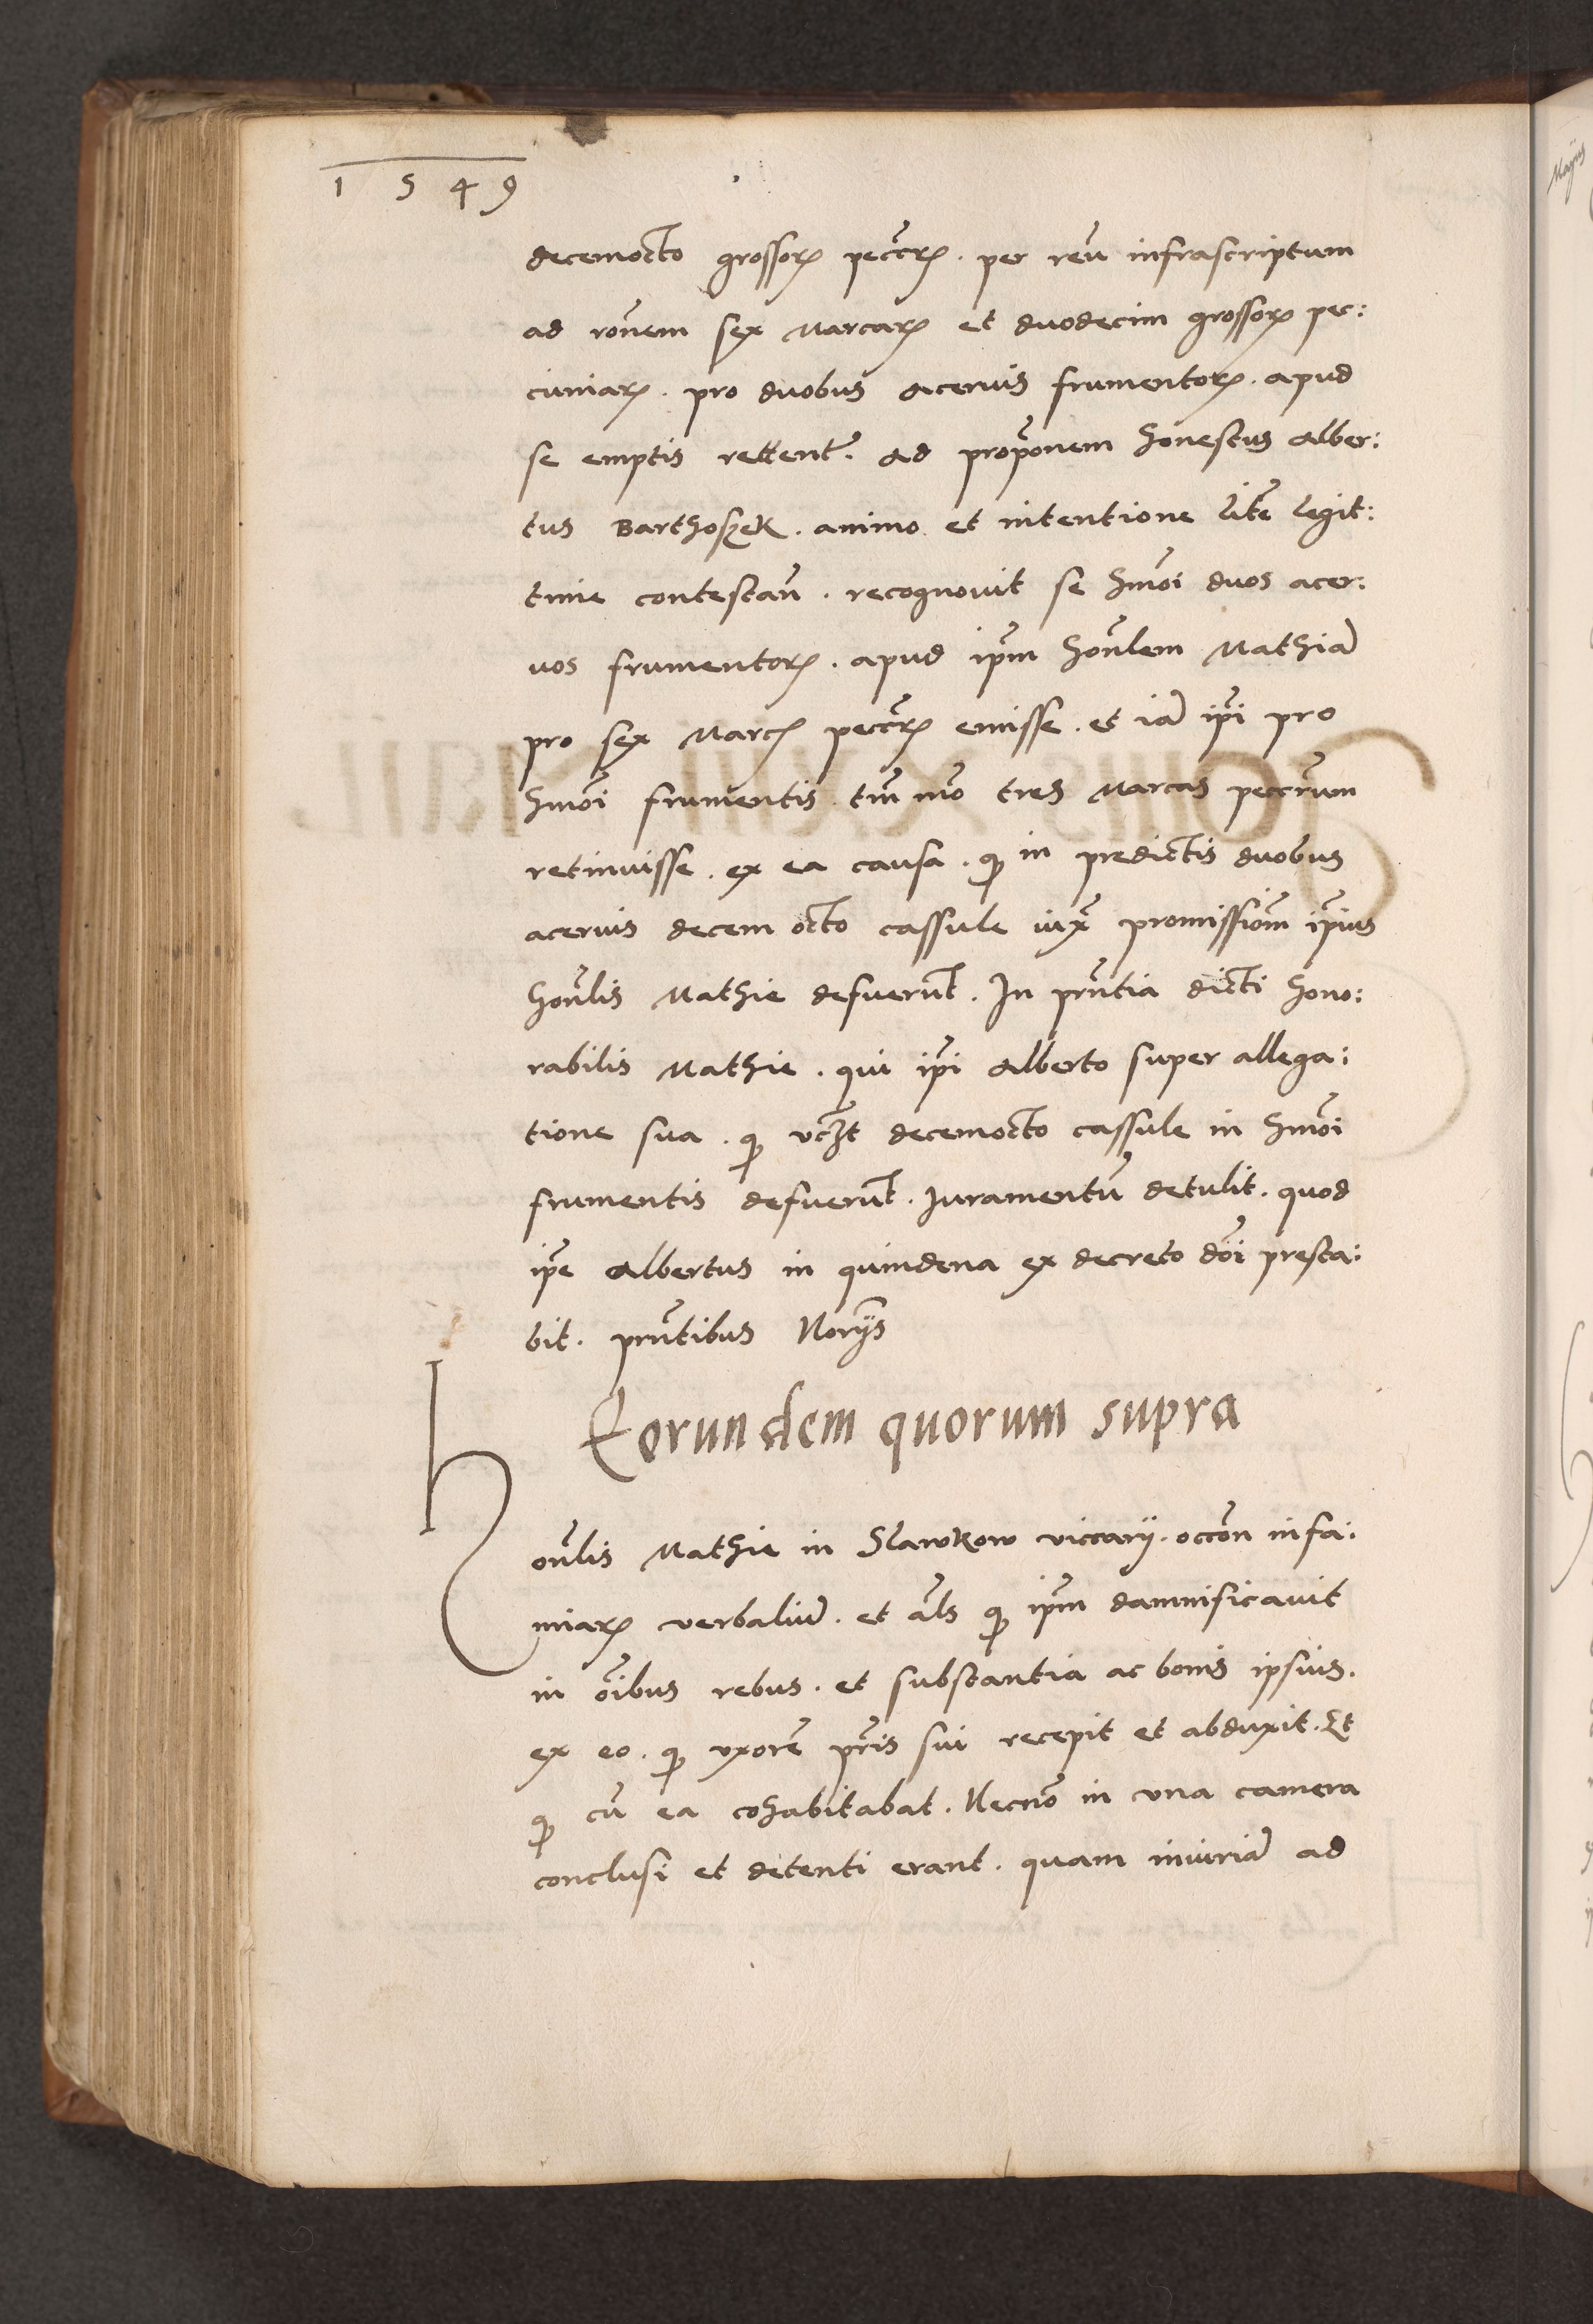 1549
decemocto grossorꝝ pecc̃rꝝ. per reũ infrascriptum
ad rõnem sex Marcarꝝ et duodecim grossorꝝ pec:
cuniarꝝ. pro duobus aceruis frumentorꝝ. apud
se emptis retent̃. ad propõnem honestus Alber:
tus Barthoszek. animo et intentione litẽ legit:
time contestañ. recognouit se hmõi duos acer:
uos frumentorꝝ. apud ip̃m honl̃em Mathiã
pro sex Marcꝭ pecc̃rꝝ emisse. et iã ip̃i pro
hmõi frumentis tm̃mõ tres Marcas pecc̃rum
retinuisse. ex ea causa. ꝙ in predictis duobus
aceruis decem octo cassule iuxᵃ promissiõm ip̃ius
honl̃is Mathie defuerũt. In pñtia dicti hono:
rabilis Mathie. qui ip̃i Alberto super allega:
tione sua. ꝙ vcꝫt decemocto cassule in hmõi
frumentis defuerũt. Iuramentũ detulit. quod
ip̃e Albertus in quindena ex decreto dñi presta:
bit. pñtibus Norijs
Eorundem quorum supra
Honl̃is Mathie in Slawkow viccarij. occõn infa:
miarꝝ verbaliũ. et al̃s ꝙ ip̃m damnificauit
in õibus rebus. et substantia ac bonis ipsius.
ex eo. ꝙ vxorẽ pr̃is sui recepit et abduxit. Et
ꝙ cũ ea cohabitabat. Necnõ in vna camera
conclusi et detenti erant. quam iniuriã ad